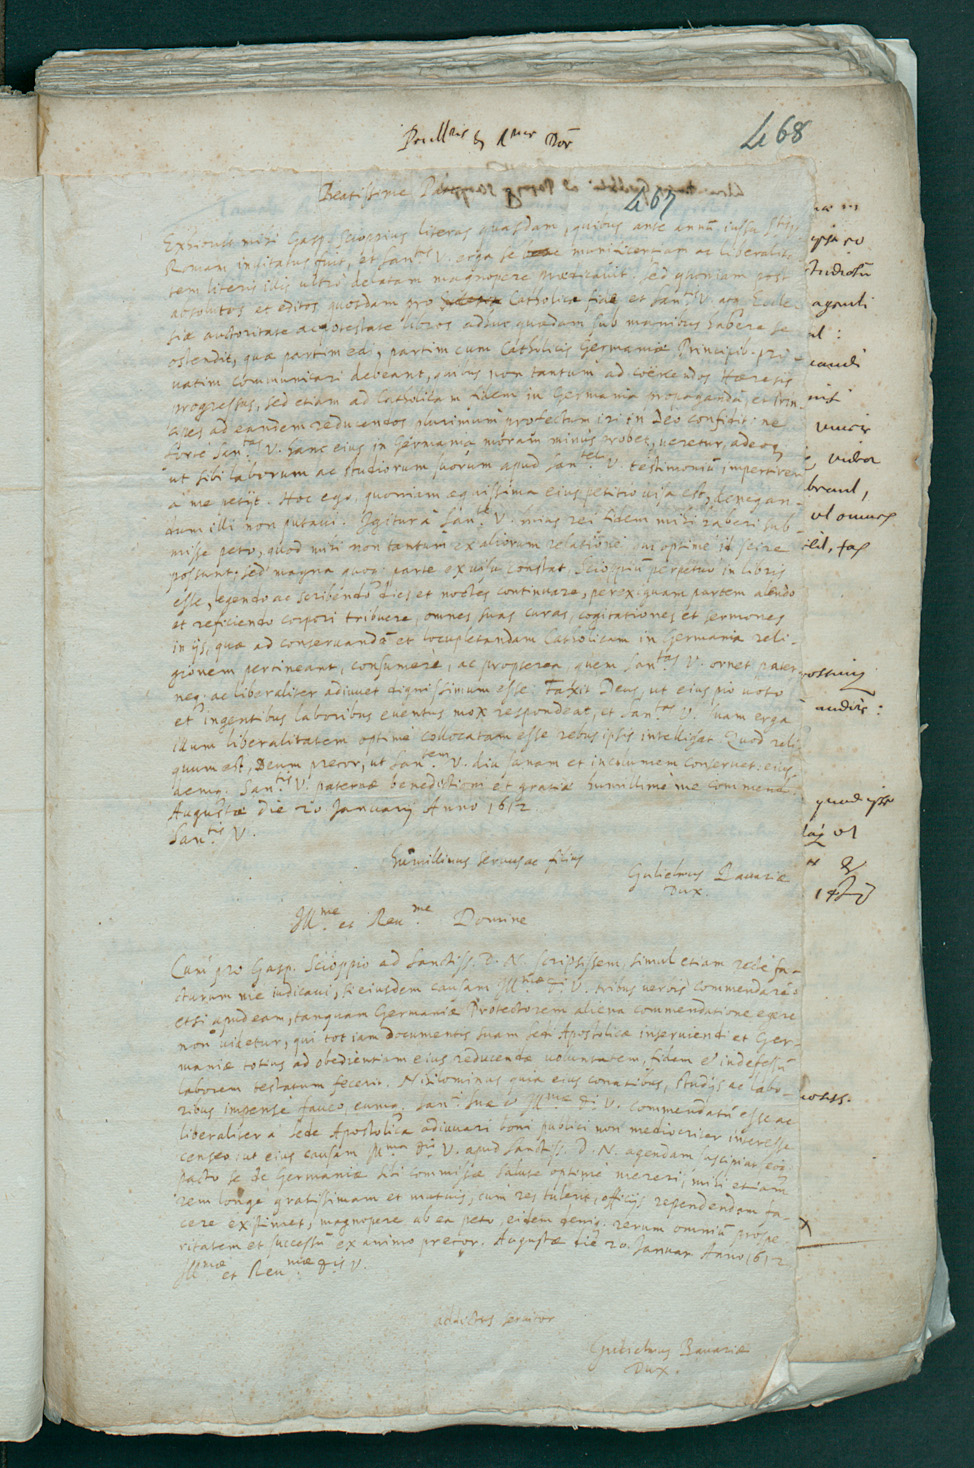 468
467
Beatissime Pater
Exhibuit mihi Gasp. Scioppius literas quasdam, quibus ante annū iussu
Romam invitatus fuit, et San.tis V. erga se munificentiam ac liberalita-
tem literis illis ultro delatam magnopere praedicavit. Sed quoniam post
absolutos et editos quosdam pro Catholica fide et San.tis V. atq. Eccle-
siae auctoritate ac potestate libros adhuc quaedam sub manibus habere se
ostendit, quae partim edi, partim cum Catholicis Germaniae Principib. pri-
vatim communicari debeant, quibus non tantum ad coërcendos Haeresis
progressus, sed etiam ad Catholicam fidem in Germania propagandā, et Prin-
cipes ad eandem reducendos plurimum profectum iri in Deo confidit: ne
forte San.tas V. hanc eius in Germania moram minus probet, veretur, adeoq.
ut sibi laborum ac studiorum suorum apud San.tem V. testimoniū impertirem
a me petijt. Hoc ego, quoniam aequissima eius petitio visa est, denegan-
dum illi non putavi. Igitur a San.te V. huius rei fidem mihi haberi sub-
misse peto, quod mihi non tantum ex aliorum relatione, qui optime id scire
possunt, sed magna quoq. parte ex usu constat, Scioppiū perpetuo in libris
esse, legendo ac scribendo dies et noctes continuare, perexiguam partem alendo
et reficiendo corpori tribuere, omnes suas curas, cogitationes, et sermones
in ijs, quae ad conservandā et locupletandam Catholicam in Germania reli-
gionem pertineant, consumere, ac propterea, quem San.tas V. ornet, pater-
neq. ac liberaliter adiuvet dignissimum esse. Faxit Deus, ut eius pio voto
et ingentibus laboribus eventus mox respondeat, et San.tas V. suam erga
illum liberalitatem optime collocatam esse rebus ipsis intelligat. Quod reli-
quum est, Deum precor, ut San.tem V. diu sanam et incolumem conservet: eius
deniq. San.tis V. paternae benedictioni et gratiae humillime me commendo.
Augustae die 20 Januarij Anno 1612.
San.tis V.
humillimus servus ac filius
Gulielmus Bavariae
Dux.
Ill.me et Reu.me Domine
Cum pro Gasp. Scioppio ad Sanctiss. D. N. scripsissem, simul etiam recte fa-
cturum me iudicavi, si eiusdem causam Ill.mae D. V. tribus verbis commendarē:
etsi apud eam, tanquam Germaniae Protectorem aliena commendatione egere
non videtur, qui tot iam documentis suam Sedi Apostolicae inserviendi et Ger-
maniae totius ad obedientiam eius reducendae voluntatem, fidem et indefessū
laborem testatum fecerit. Nihilominus quia eius conatibus, studijs ac labo-
ribus impense faveo, eumq. San.ti Suae et Ill.mae D. V. commendatū esse ac
liberaliter a Sede Apostolica adiuvari boni publici non mediocriter interesse
censeo, ut eius causam Ill.ma D. V. apud Sanctiss. D. N. agendam suscipiat, eoq.
pacto se de Germaniae sibi commissae salute optime mereri, mihi etiam
rem longe gratissimam et mutuis, cum res tulerit, officijs rependendam fa-
cere existimet, magnopere ab ea peto, eidem deniq. rerum omniū prospe-
ritatem et successū ex animo precor. Augustae die 20. Januar. Anno 1612
Ill.mae et Reu.mae D.is V.
addictus servitor
Gulielmus Bavariae
Dux.